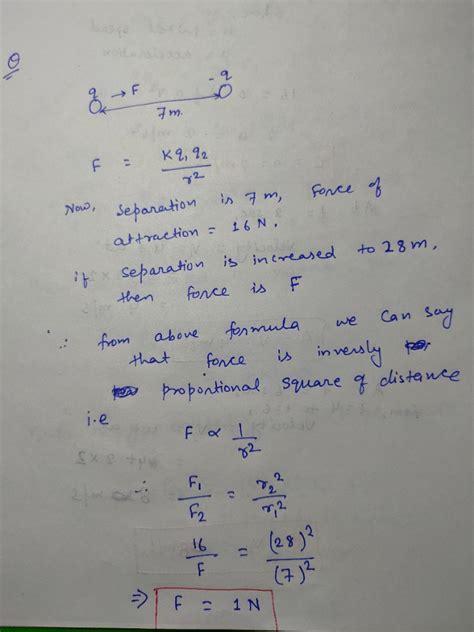 Q
q → F - q
7m.
F = K q1 q2 / r²
Now, separation is 7m, force of
attraction = 16 N.
if separation is increased to 28 m.
then force is F
∴ from above formula we can say
that force is inversly
proportional square of distance
i.e
F ∝ 1 / r²
∴ F1 / F2 = r2² / r1²
16 / F = (28)² / (7)²
⇒ F = 1 N